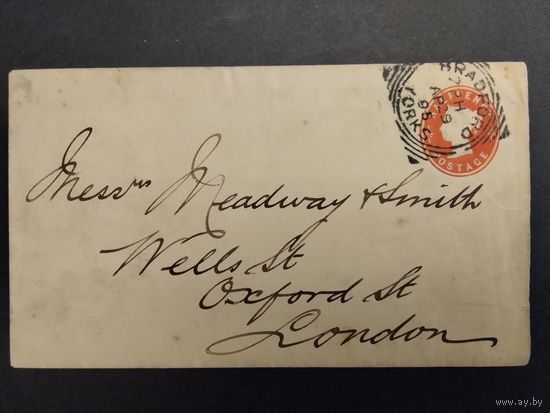 BRADFORD
AP 29
95
YORKS
POSTAGE
Messrs Meadway & Smith
Wells St
Oxford St
London
www.ay.by